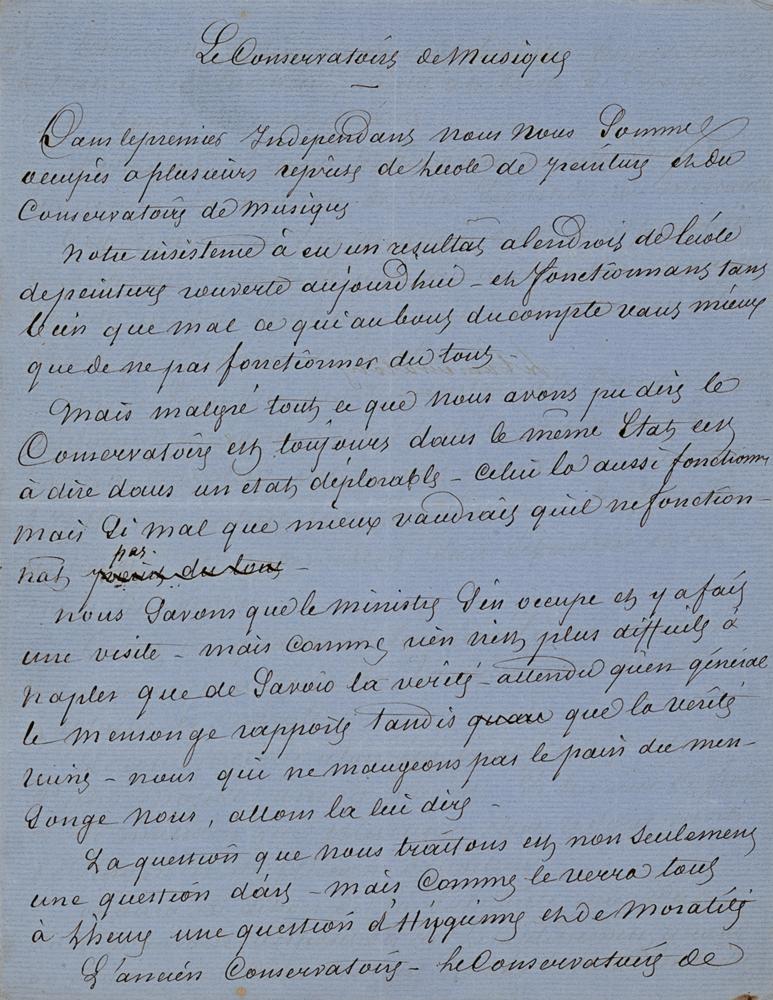 Le Conservatoire de Musique
Dans le premier Independant nous nous Sommes
occupés a plusieurs reprise de lecole de peinture et du
Conservatoire de Musique
Notre insistence à eu un resultat a lendroit de lécole
de peinture rouverte aujourd'hui – et fonctionnant tant
bien que mal ce qui au bout du compte vaut mieux
que de ne pas fonctionner du tout
Mais malgré tout ce que nous avons pu dire le
Conservatoire est toujours dans le même Etat cest
à dire dans un etat déplorable – celui la aussi fonctionne
mais Si mal que mieux vaudrait quil ne fonction-
nat pas. point du tout –
nous Savons que le ministre S'en occupe et y a fait
une visite – mais comme rien nest plus difficile à
naples que de Savoir la verité – attendu qu'en général
le mensonge rapporte tandis que la verité
ruine – nous qui ne mangeons pas le pain du men-
songe nous, allons la lui dire –
La question que nous traitons est non seulement
une question dart – mais comme le verra tout
à lheure une question d'Higienne et de Moralité
L'ancien Conservatoire – le Conservatoire de